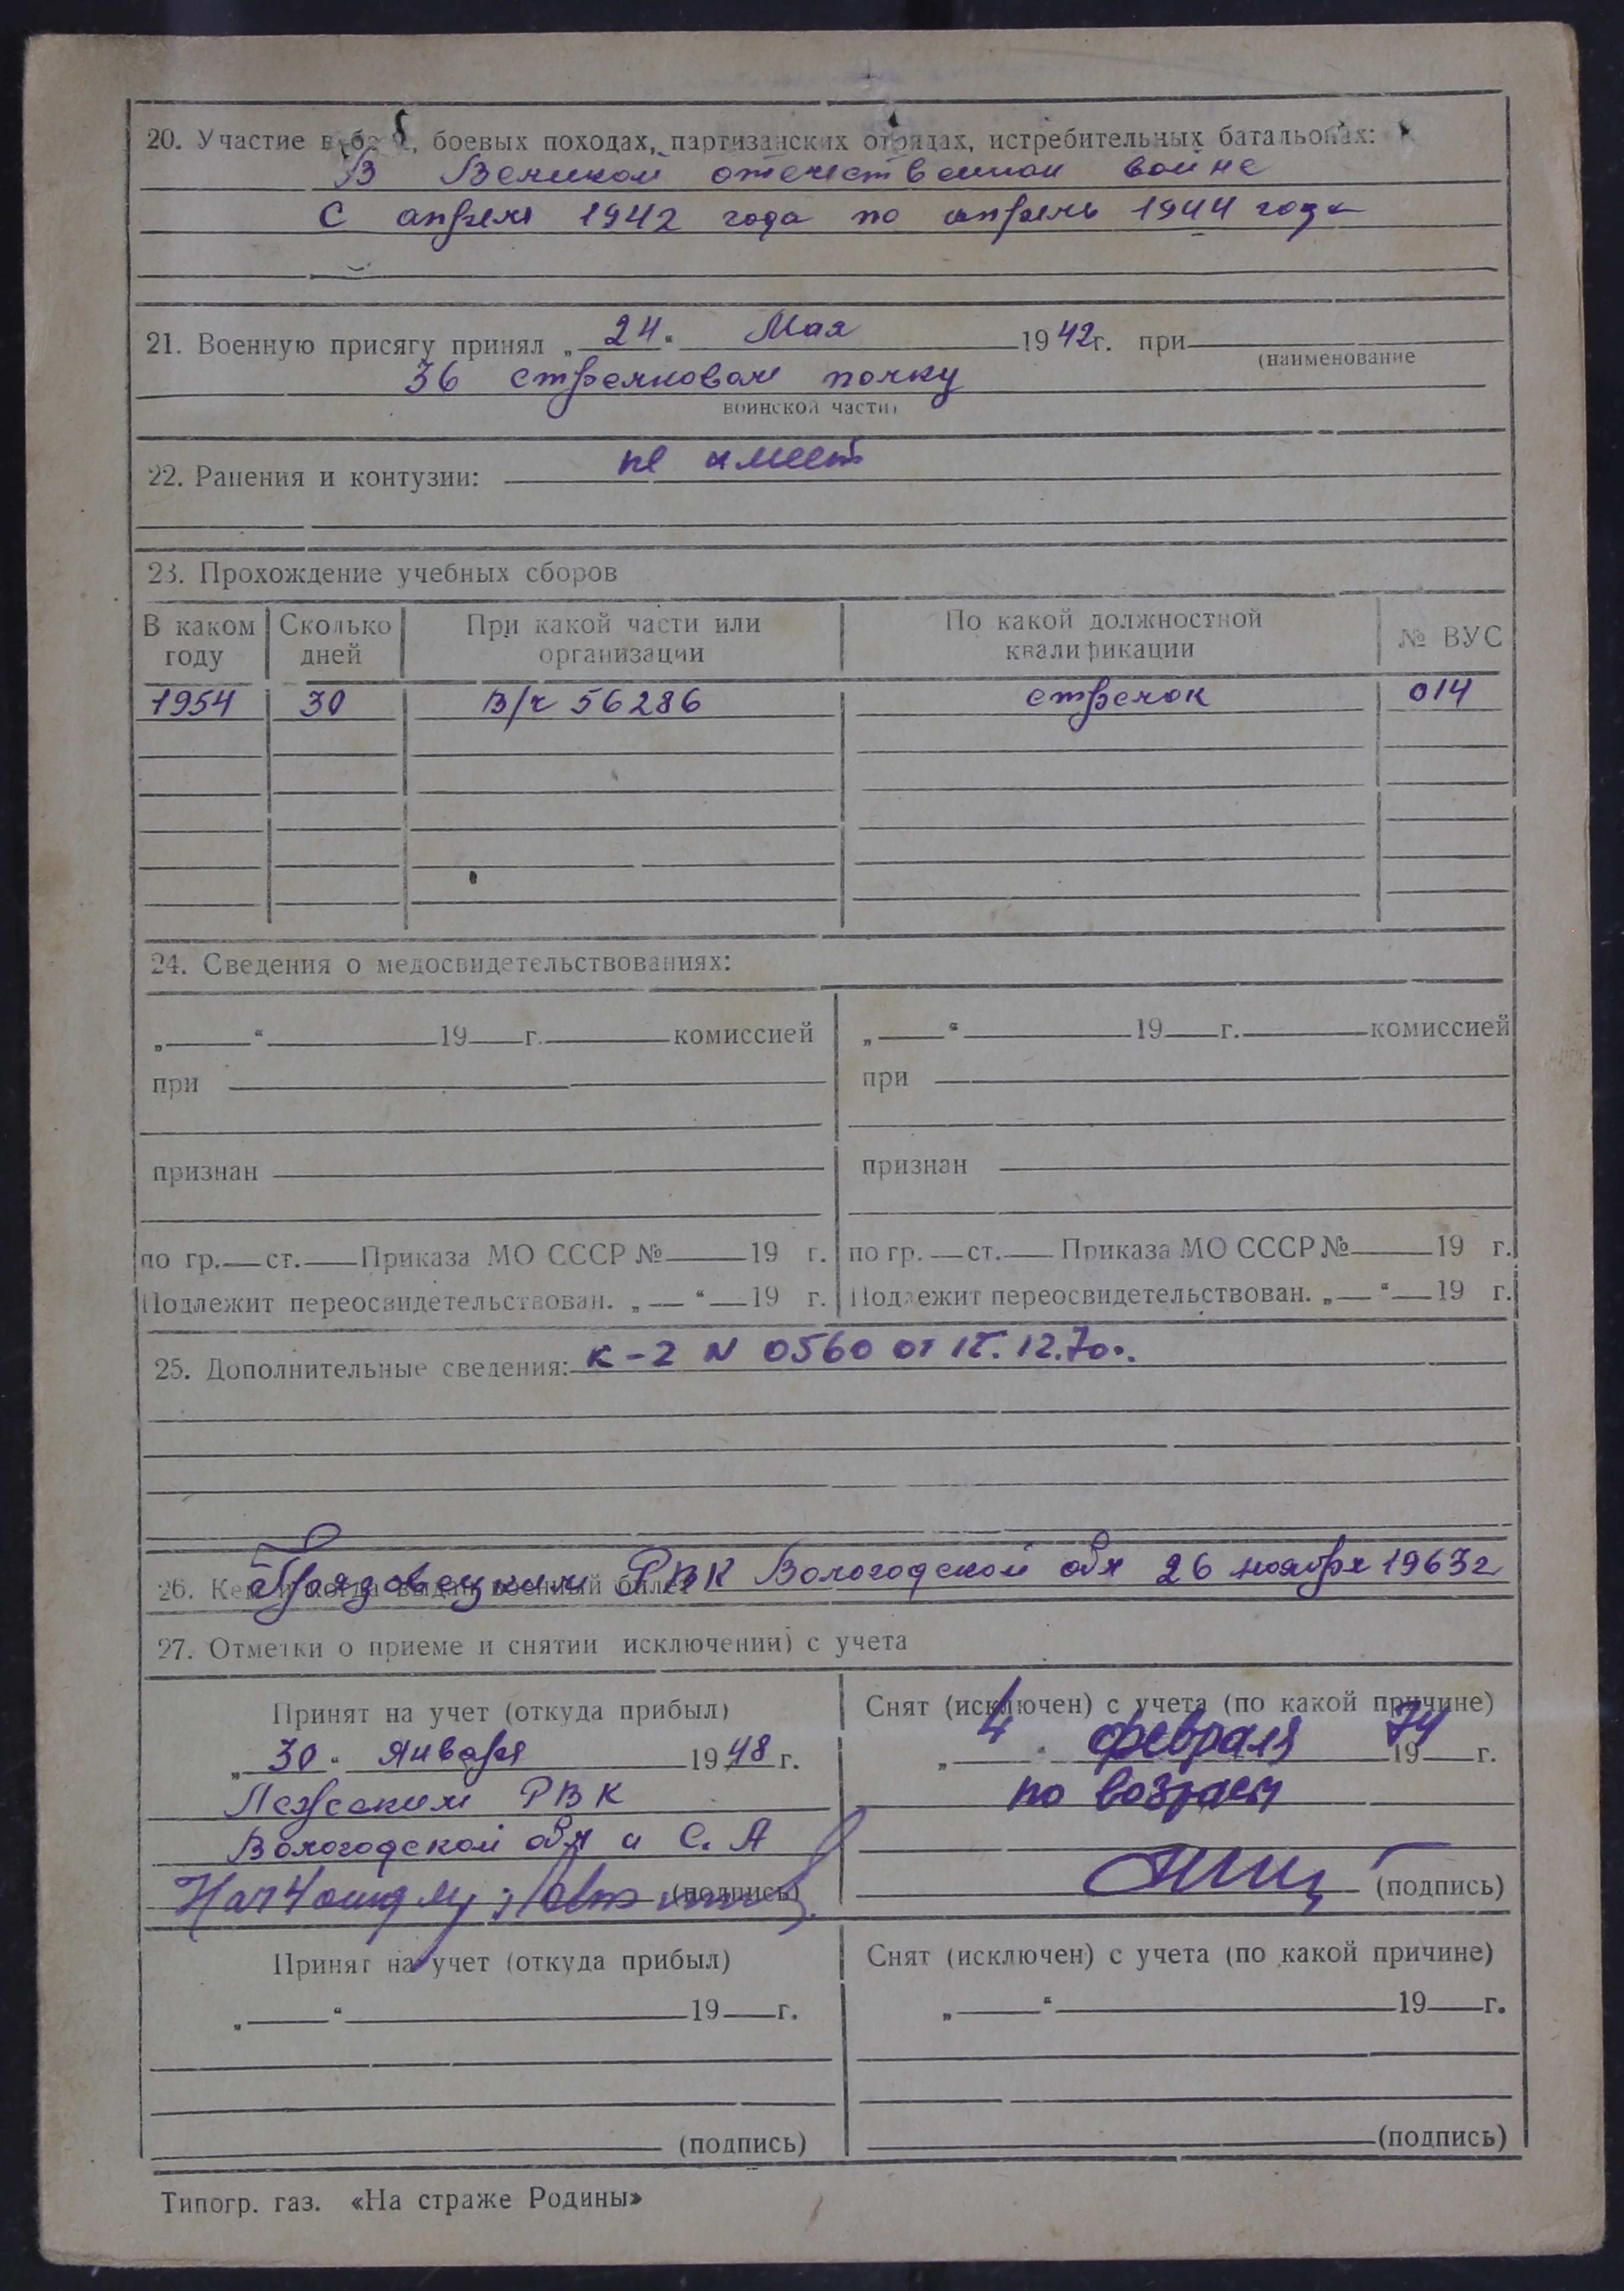 20. Участие в боях, боевых походах, партизанских отрядах, истребительных батальонах:
В Великой отечественной войне
С апреля 1942 года по апрель 1944 года
21. Военную присягу принял „24“ Мая 1942г. при
(наименование
36 стрелковом полку
воинской части)
22. Ранения и контузии: не имеет
23. Прохождение учебных сборов
В каком году Сколько дней При какой части или организации По какой должностной квалификации № ВУС
1954 30 В/ч 56286 стрелок 014
24. Сведения о медосвидетельствованиях:
„ “ 19 г. комиссией „ “ 19 г. комиссией
при при
признан признан
по гр. ст. Приказа МО СССР № 19 г. по гр. ст. Приказа МО СССР № 19 г.
Подлежит переосвидетельствован. „ “ 19 г. Подлежит переосвидетельствован. „ “ 19 г.
25. Дополнительные сведения: К-2 N 0560 от 12.70г.
26. Кем и когда выдан военный билет
Грязовецким РВК Вологодской обл 26 ноября 1963г
27. Отметки о приеме и снятии исключении) с учета
Принят на учет (откуда прибыл) Снят (исключен) с учета (по какой причине)
„30“ Января 1948 г. „4“ февраля 1974 г.
Лежским РВК по возрасту
Вологодской обл и С. А
(подпись) (подпись)
Принят на учет (откуда прибыл) Снят (исключен) с учета (по какой причине)
„ “ 19 г. „ “ 19 г.
(подпись) (подпись)
Типогр. газ. «На страже Родины»